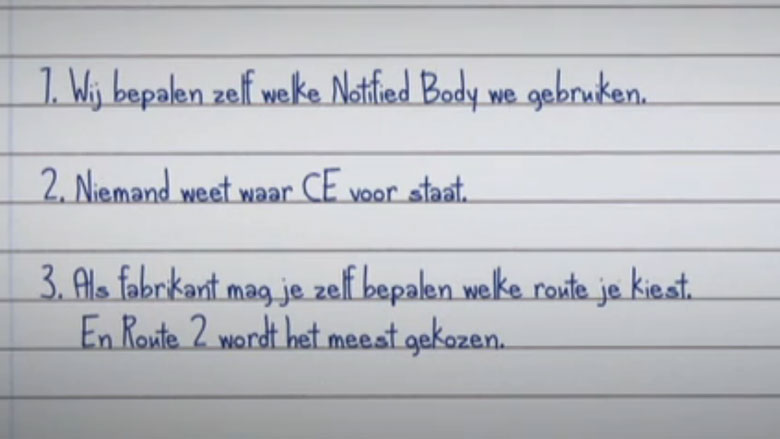 1. Wij bepalen zelf welke Notified Body we gebruiken.
2. Niemand weet waar CE voor staat.
3. Als fabrikant mag je zelf bepalen welke route je kiest.
En Route 2 wordt het meest gekozen.